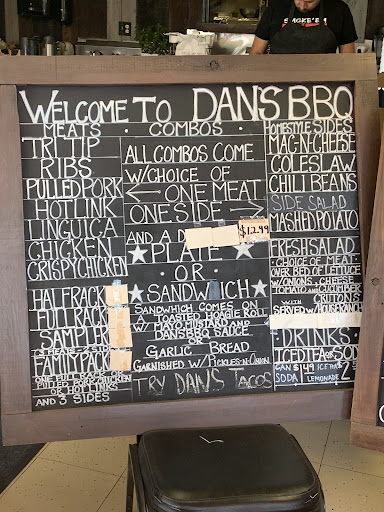 SMOKE'EM
WELCOME TO DAN'S BBQ
MEATS
TRI TIP
RIBS
PULLED PORK
HOT LINK
LINGUICA
CHICKEN
CRISPY CHICKEN
HALF RACK
FULL RACK
SAMPLER
3 MEATS - 2 SIDES
FAMILY PACK
FULL RACK
PULLED PORK, CHICKEN
OR HOT LINKS
AND 3 SIDES
COMBOS
ALL COMBOS COME
W/CHOICE OF
ONE MEAT
ONE SIDE
AND A D $12.99
PLATE
OR
SANDWICH
SANDWICH COMES ON
TOASTED HOAGIE ROLL
W/ MAYO, MUSTARD AND
DANS BBQ SAUCE
OR
GARLIC BREAD
GARNISHED W/ PICKLES-N-ONION
TRY DAN'S TACOS
HOMESTYLE SIDES
MAC-N-CHEESE
COLESLAW
CHILI BEANS
SIDE SALAD
MASHED POTATO
FRESH SALAD
CHOICE OF MEAT
OVER BED OF LETTUCE
W/ONIONS, CHEESE
TOMATO AND CUCUMBER
CRUTONS
WITH
SERVED W/
DRINKS
ICED TEA OR SODA
CAN SODA $1.49 ICE TEA LEMONADE $2